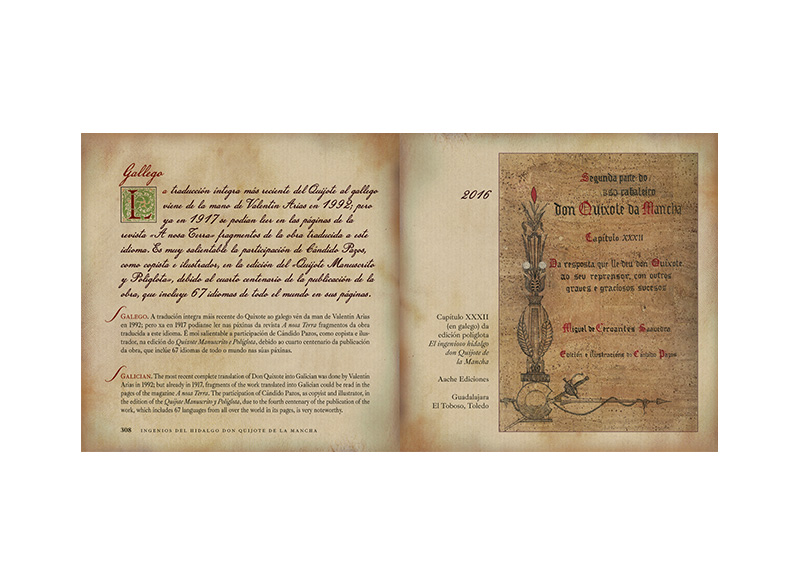 Gallego
La traducción íntegra más reciente del Quijote al gallego
viene de la mano de Valentín Arias en 1992; pero
ya en 1917 se podían leer en las páginas de la
revista «A nosa Terra» fragmentos de la obra traducida a este
idioma. Es muy salientable la participación de Cándido Pazos,
como copista e ilustrador, en la edición del «Quijote Manuscrito
y Políglota», debido al cuarto centenario de la publicación de la
obra, que incluye 67 idiomas de todo el mundo en sus páginas.
GALEGO. A tradución íntegra máis recente do Quixote ao galego vén da man de Valentín Arias
en 1992; pero xa en 1917 podíanse ler nas páxinas da revista A nosa Terra fragmentos da obra
traducida a este idioma. É moi salientable a participación de Cándido Pazos, como copista e ilus-
trador, na edición do Quixote Manuscrito e Políglota, debido ao cuarto centenario da publicación
da obra, que inclúe 67 idiomas de todo o mundo nas súas páxinas.
GALICIAN. The most recent complete translation of Don Quixote into Galician was done by Valentín
Arias in 1992; but already in 1917, fragments of the work translated into Galician could be read in the
pages of the magazine A nosa Terra. The participation of Cándido Pazos, as copyist and illustrator, in
the edition of the Quijote Manuscrito y Políglota, due to the fourth centenary of the publication of the
work, which includes 67 languages from all over the world in its pages, is very noteworthy.
308 INGENIOS DEL HIDALGO DON QUIJOTE DE LA MANCHA
2016
Capítulo XXXII
(en galego) da
edición políglota
El ingenioso hidalgo
don Quijote de
la Mancha
Aache Ediciones
Guadalajara
El Toboso, Toledo
Segunda parte do
cabaleiro
don Quixote da Mancha
Capítulo XXXII
Da resposta que lle deu don Quixote
ao seu reprensor, con outros
graves e graciosos sucesos
Miguel de Cervantes Saavedra
Edición e ilustracións de Cándido Pazos